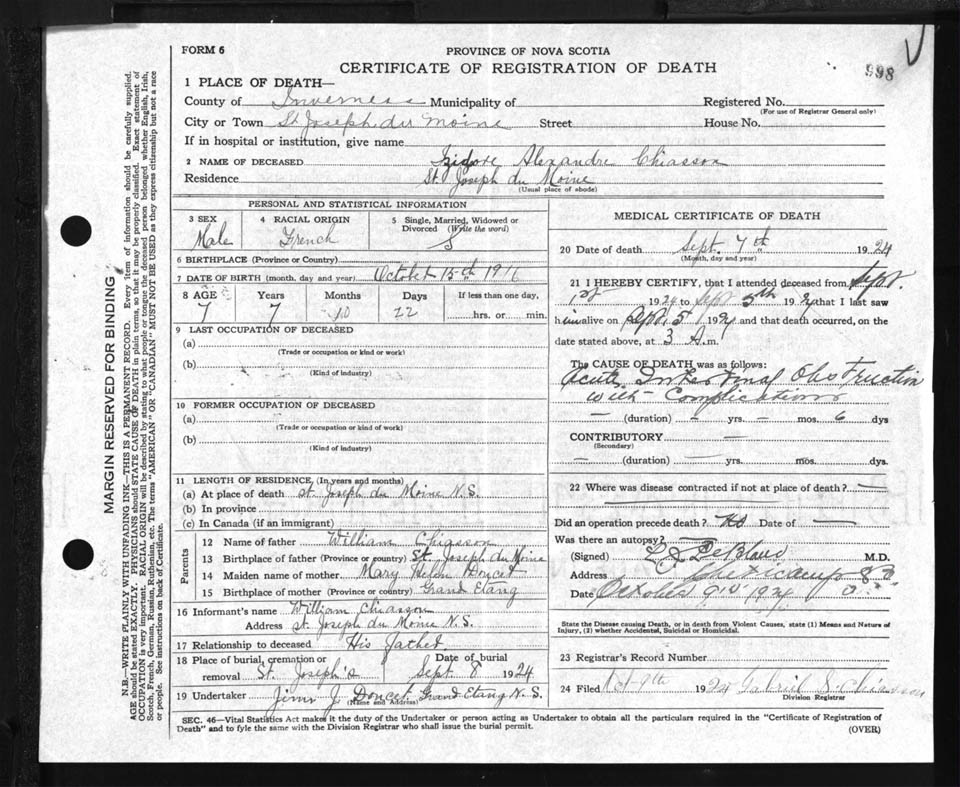 998
FORM 6
PROVINCE OF NOVA SCOTIA
CERTIFICATE OF REGISTRATION OF DEATH
1 PLACE OF DEATH—
County of Inverness Municipality of
Registered No.
(For use of Registrar General only)
City or Town St Joseph du Moine Street House No.
If in hospital or institution, give name
2 NAME OF DECEASED Izidore Alexandre Chiasson
Residence St. Joseph du Moine
(Usual place of abode)
PERSONAL AND STATISTICAL INFORMATION
3 SEX
Male
4 RACIAL ORIGIN
French
5 Single, Married, Widowed or
Divorced (Write the word)
S
6 BIRTHPLACE (Province or Country)
7 DATE OF BIRTH (month, day and year) October 15th 1916
8 AGE Years Months Days If less than one day,
7 7 10 22 hrs. or min.
9 LAST OCCUPATION OF DECEASED
(a)
(Trade or occupation or kind or work)
(b)
(Kind of industry)
10 FORMER OCCUPATION OF DECEASED
(a)
(Trade or occupation or kind or work)
(b)
(Kind of industry)
11 LENGTH OF RESIDENCE (In years and months)
(a) At place of death St. Joseph du Moine N.S.
(b) In province
(c) In Canada (if an immigrant)
Parents
12 Name of father William Chiasson
13 Birthplace of father (Province or country) St. Joseph du Moine
14 Maiden name of mother Mary Helen Doucet
15 Birthplace of mother (Province or country) Grand Etang
16 Informant's name William Chiasson
Address St. Joseph du Moine N.S.
17 Relationship to deceased His father
18 Place of burial, cremation or Date of burial
removal St. Joseph's Sept. 8 1924
19 Undertaker J. Doucet Grand Etang N.S.
(Name and Address)
MEDICAL CERTIFICATE OF DEATH
20 Date of death Sept. 7th 1924
(Month, day and year)
21 I HEREBY CERTIFY, that I attended deceased from Sept.
1st 1924 to Sept 5th 1924 that I last saw
him alive on Sept. 5 1924 and that death occurred, on the
date stated above, at 3 A.m.
The CAUSE OF DEATH was as follows:
Acute Intestinal Obstruction
with Complications
— (duration) — yrs. — mos. 6 dys
CONTRIBUTORY —
(Secondary)
— (duration) — yrs. mos. dys.
22 Where was disease contracted if not at place of death? —
Did an operation precede death? No Date of —
Was there an autopsy?
(Signed) L J LeBlanc M.D.
Address Cheticamp
Date October 9th 1924
State the Disease causing Death, or in death from Violent Causes, state (1) Means and Nature of
Injury, (2) whether Accidental, Suicidal or Homicidal.
23 Registrar's Record Number
24 Filed Oct 9th 1924 Gabriel
Division Registrar
SEC. 46—Vital Statistics Act makes it the duty of the Undertaker or person acting as Undertaker to obtain all the particulars required in the "Certificate of Registration of
Death" and to fyle the same with the Division Registrar who shall issue the burial permit.
(OVER)
MARGIN RESERVED FOR BINDING
N.B.—WRITE PLAINLY WITH UNFADING INK—THIS IS A PERMANENT RECORD. Every item of information should be carefully supplied.
AGE should be stated EXACTLY. PHYSICIANS should STATE CAUSE OF DEATH in plain terms, so that it may be properly classified. Exact statement of
OCCUPATION is very important. RACIAL ORIGIN will be described by stating to what people or tongue the deceased person belonged whether English, Irish,
Scotch, French, German, Russian, Ruthenian, etc. The terms "AMERICAN" OR "CANADIAN" MUST NOT BE USED as they express citizenship but not a race
or people. See instructions on back of Certificate.